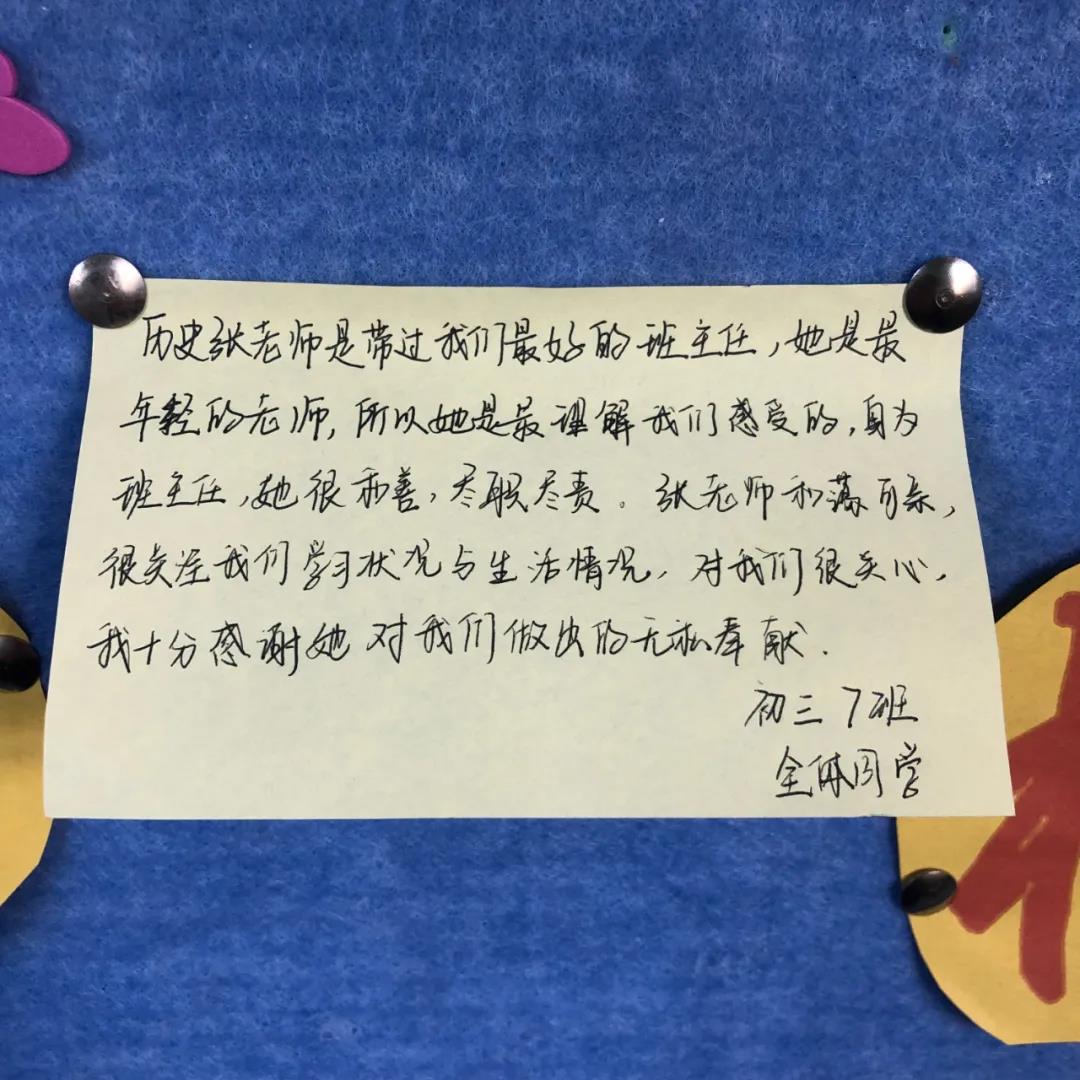 历史张老师是带过我们最好的班主任，她是最
年轻的老师，所以她是最理解我们感受的，身为
班主任，她很和善，尽职尽责。张老师和蔼可亲，
很关注我们学习状况与生活情况，对我们很关心，
我十分感谢她对我们做出的无私奉献．
初三7班
全体同学